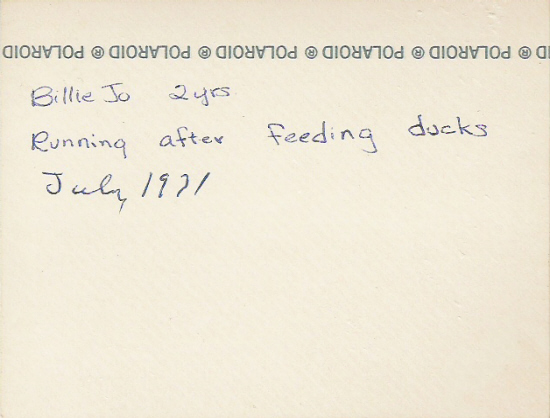 DIOЯAJOԀ ® POLAROID ® POLAROID ® POLAROID ® POLAROID ®
Billie Jo 2yrs
Running after feeding ducks
July, 1971